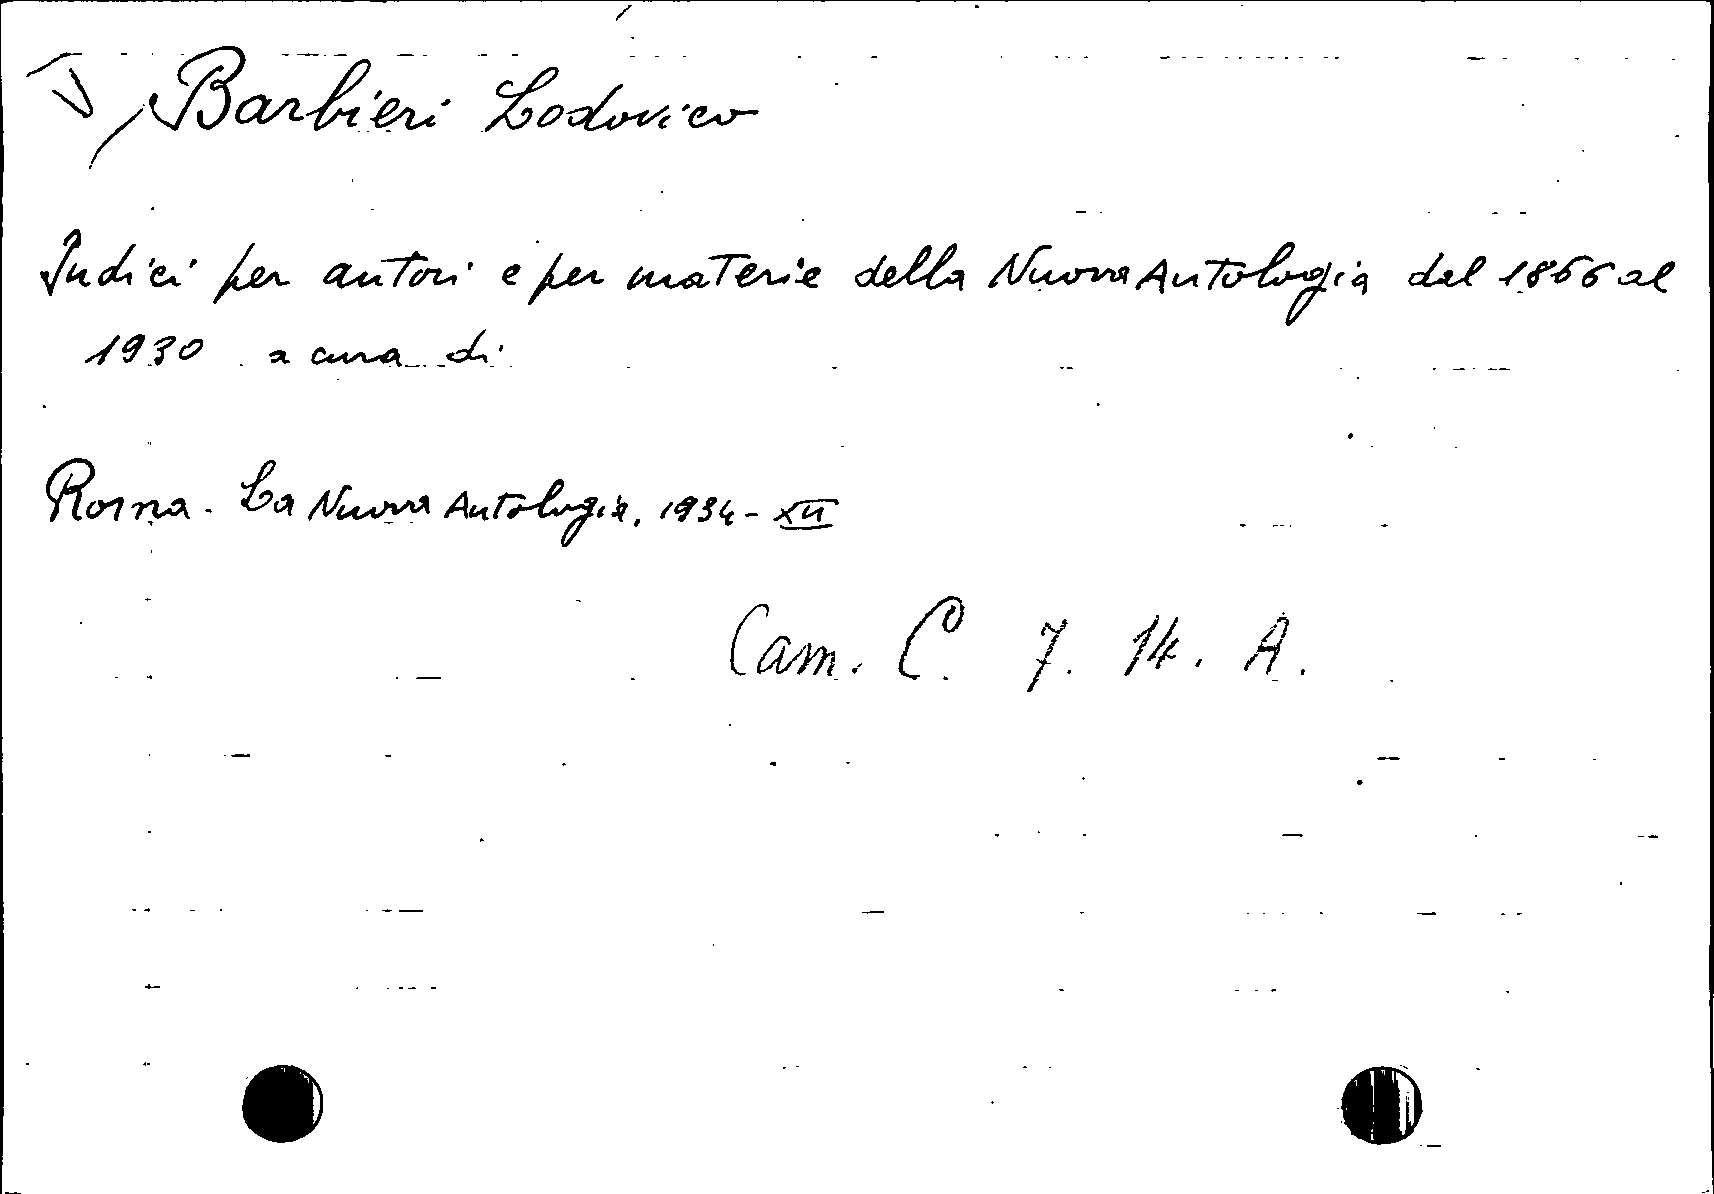 Barbieri Lodovico
Indici per autori e per materie della Nuova Antologia dal 1866 al
1930 a cura di
Roma. La Nuova Antologia, 1934-XII
Cam. C. 7. 14. A.